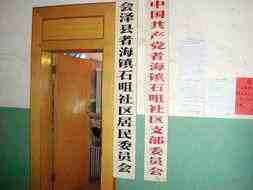 中国共产党者海镇石咀社区支部委员会
会泽县者海镇石咀社区居民委员会